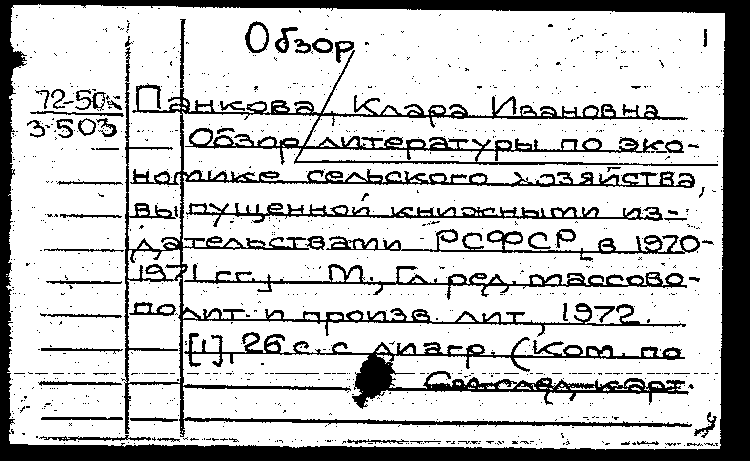 Обзор. 1
72-50к
3-503
Панкова, Клара Ивановна
Обзор литературы по эко-
номике сельского хозяйства,
выпущенной книжными из-
дательствами РСФСР, в 1970-
1971 гг.. М., Гл. ред. массово-
полит. и произв. лит., 1972.
[1], 26 с. с диагр. (Ком. по
См. след. карт.